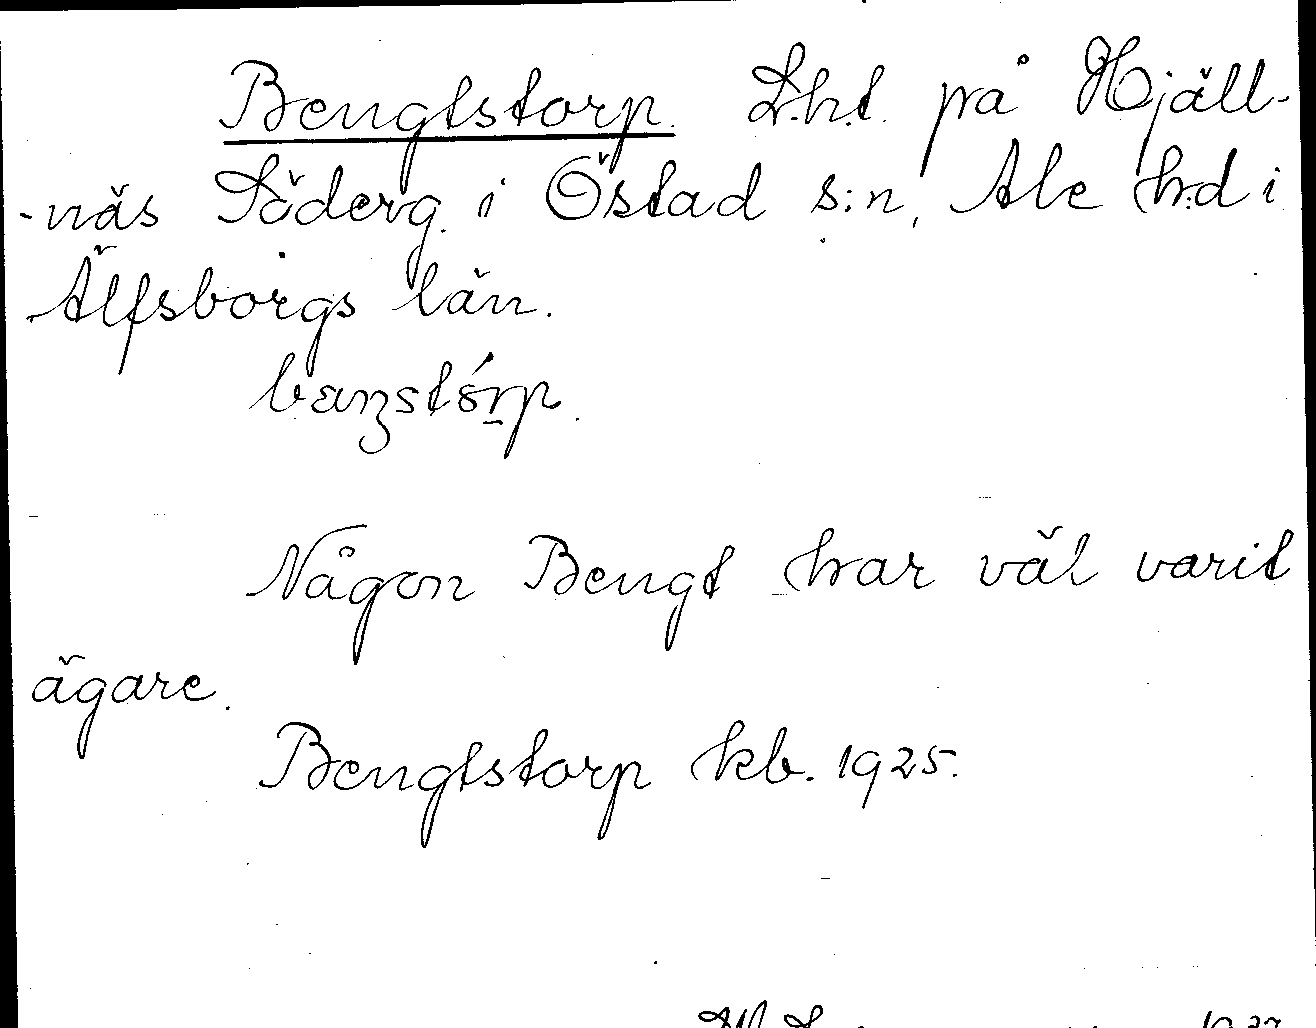 Bengtstorp. L.h.t. på Hjäll-
-näs Söderg. i Östad s:n, Ale h:d i
Älfsborgs län.
Någon Bengt har väl varit
ägare.
Bengtstorp kb. 1925.